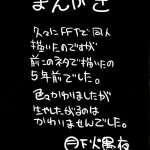 まんがき
久々にFFTで同人
描いたのですが
前このネタで描いたの
5年前でした。
色々かわりましたが
生やしたがるのは
かわりませんでした。
月下火黒夜